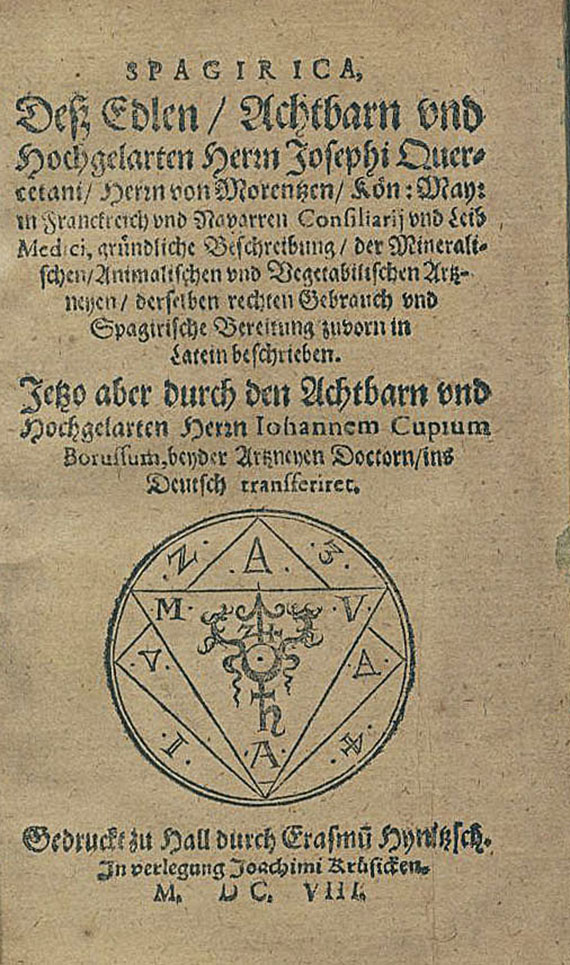 SPAGIRICA,
Deß Edlen / Achtbarn vnd
Hochgelarten Herrn Josephi Quer-
cetani / Herrn von Morentzen / Kön: May:
in Franckreich vnd Navarren Consiliarij vnd Leib
Medici, gründliche Beschreibung / der Minerali-
schen / Animalischen vnd Vegetabilischen Artz-
neyen / derselben rechten Gebrauch vnd
Spagirische Bereitung zuvorn in
Latein beschrieben.
Jetzo aber durch den Achtbarn vnd
Hochgelarten Herrn Iohannem Cupium
Borussum, beyder Artzneyen Doctorn / ins
Deutsch transferiret.
Z A 3
M V
A A
I A 4
Gedruckt zu Hall durch Erasmū Hynitzsch.
In verlegung Joachimi Krüsicken.
M. DC. VIII.